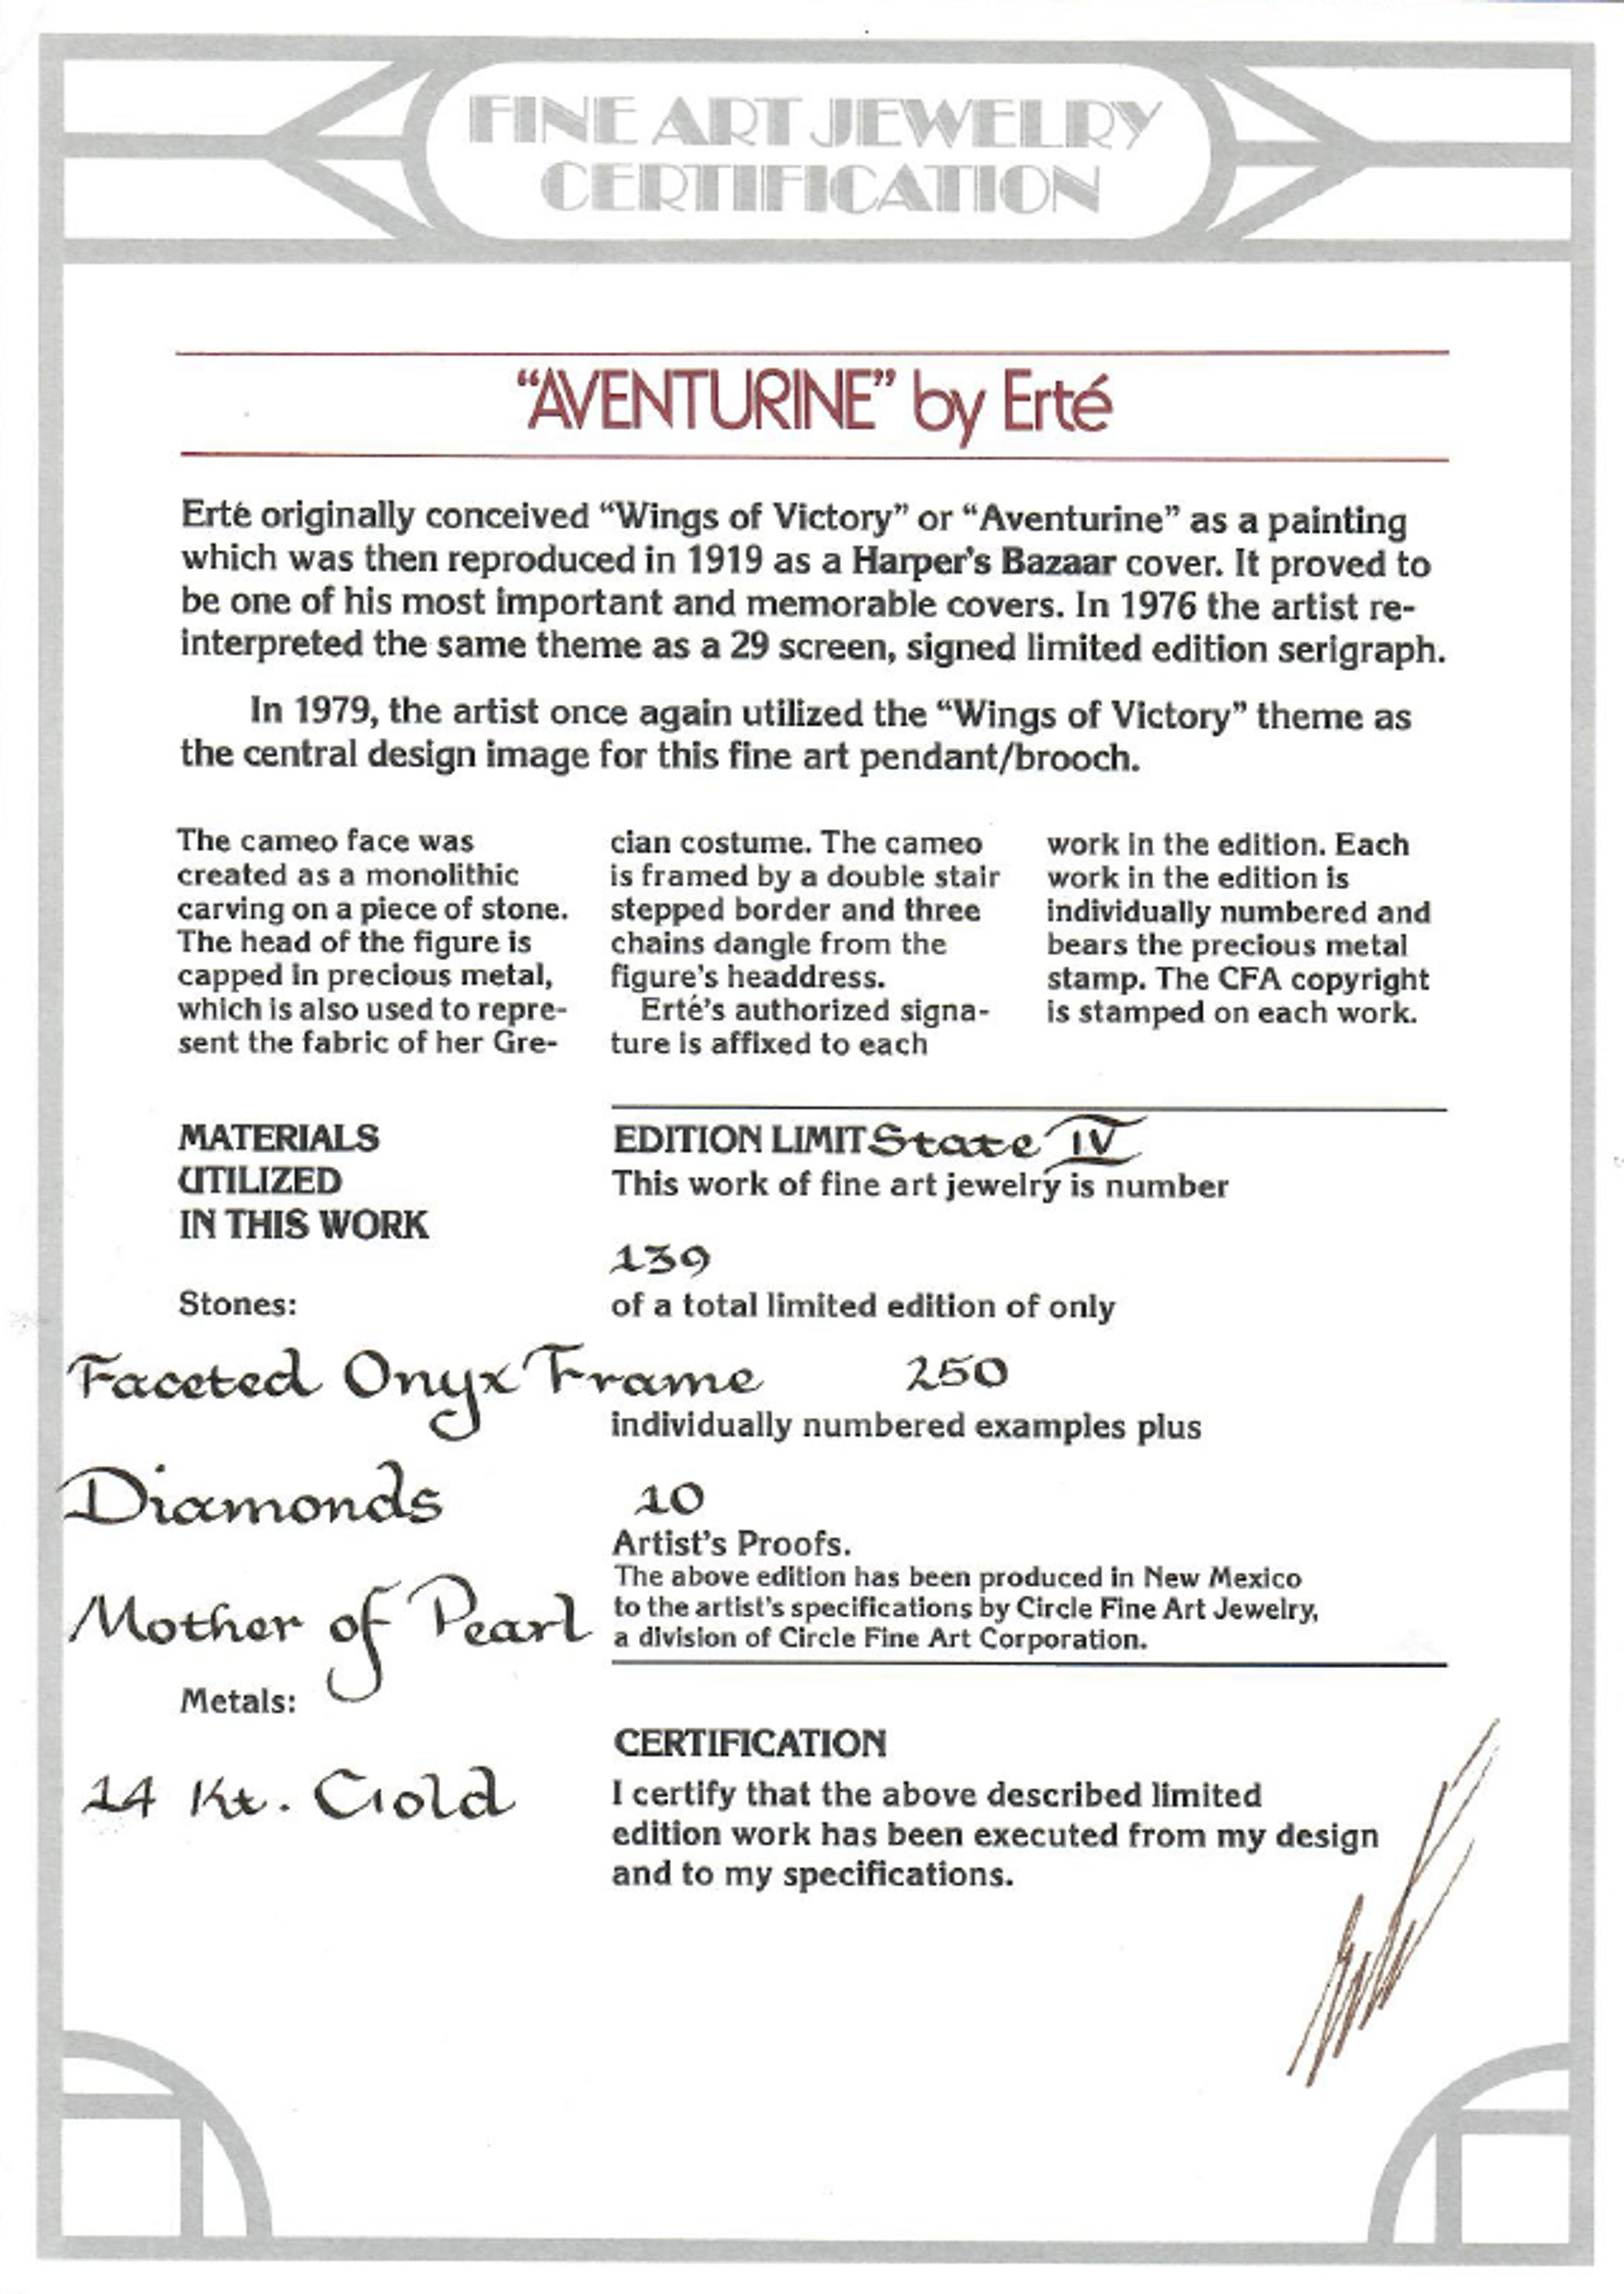 FINE ART JEWELRY
CERTIFICATION
“AVENTURINE” by Erté
Erté originally conceived “Wings of Victory” or “Aventurine” as a painting
which was then reproduced in 1919 as a Harper's Bazaar cover. It proved to
be one of his most important and memorable covers. In 1976 the artist re-
interpreted the same theme as a 29 screen, signed limited edition serigraph.
In 1979, the artist once again utilized the “Wings of Victory” theme as
the central design image for this fine art pendant/brooch.
The cameo face was
created as a monolithic
carving on a piece of stone.
The head of the figure is
capped in precious metal,
which is also used to repre-
sent the fabric of her Gre-
cian costume. The cameo
is framed by a double stair
stepped border and three
chains dangle from the
figure's headdress.
Erté's authorized signa-
ture is affixed to each
work in the edition. Each
work in the edition is
individually numbered and
bears the precious metal
stamp. The CFA copyright
is stamped on each work.
MATERIALS
UTILIZED
IN THIS WORK
Stones:
Faceted Onyx Frame
Diamonds
Mother of Pearl
Metals:
14 Kt. Gold
EDITION LIMIT State IV
This work of fine art jewelry is number
139
of a total limited edition of only
250
individually numbered examples plus
10
Artist's Proofs.
The above edition has been produced in New Mexico
to the artist's specifications by Circle Fine Art Jewelry,
a division of Circle Fine Art Corporation.
CERTIFICATION
I certify that the above described limited
edition work has been executed from my design
and to my specifications.